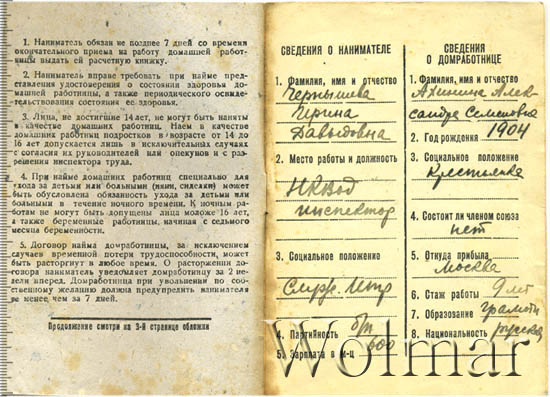 1. Наниматель обязан не позднее 7 дней со времени
окончательного приема на работу домашней работ-
ницы выдать ей расчетную книжку.
2. Наниматель вправе требовать при найме пред-
ставления удостоверения о состоянии здоровья дома-
шней работницы, а также периодического освиде-
тельствования состояния ее здоровья.
3. Лица, не достигшие 14 лет, не могут быть наняты
в качестве домашних работниц. Наем в качестве
домашних работниц подростков в возрасте от 14 до
16 лет допускается лишь в исключительных случаях
с согласия их руководителей или опекунов и с раз-
решения инспектора труда.
4. При найме домашних работниц специально для
ухода за детьми или больными (няни, сиделки) может
быть обусловлена обязанность ухода за детьми или
больными в течение ночного времени. К ночным ра-
ботам не могут быть допущены лица моложе 16 лет,
а также беременные работницы, начиная с седьмого
месяца беременности.
5. Договор найма домработницы, за исключением
случаев временной потери трудоспособности, может
быть расторгнут в любое время. О расторжении до-
говора наниматель уведомляет домработницу за 2 не-
дели вперед. Домработница при увольнении по со-
ственному желанию должна предупредить нанимателя
не менее чем за 7 дней.
Продолжение смотри на 3-й странице обложки
СВЕДЕНИЯ О НАНИМАТЕЛЕ
1. Фамилия, имя и отчество
Чернышева
Ирина
Давыдовна
2. Место работы и должность
НКВод
инспектор
3. Социальное положение
Служ.
4. Партийность бп
5. Зарплата в м-ц 600
СВЕДЕНИЯ
О ДОМРАБОТНИЦЕ
1. Фамилия, имя и отчество
Алек-
сандра Семеновна
2. Год рождения 1904
3. Социальное положение
Крестьянка
4. Состоит ли членом союза
нет
5. Откуда прибыла
Москва
6. Стаж работы 9 лет
7. Образование грамотн
8. Национальность русская
Wolmar